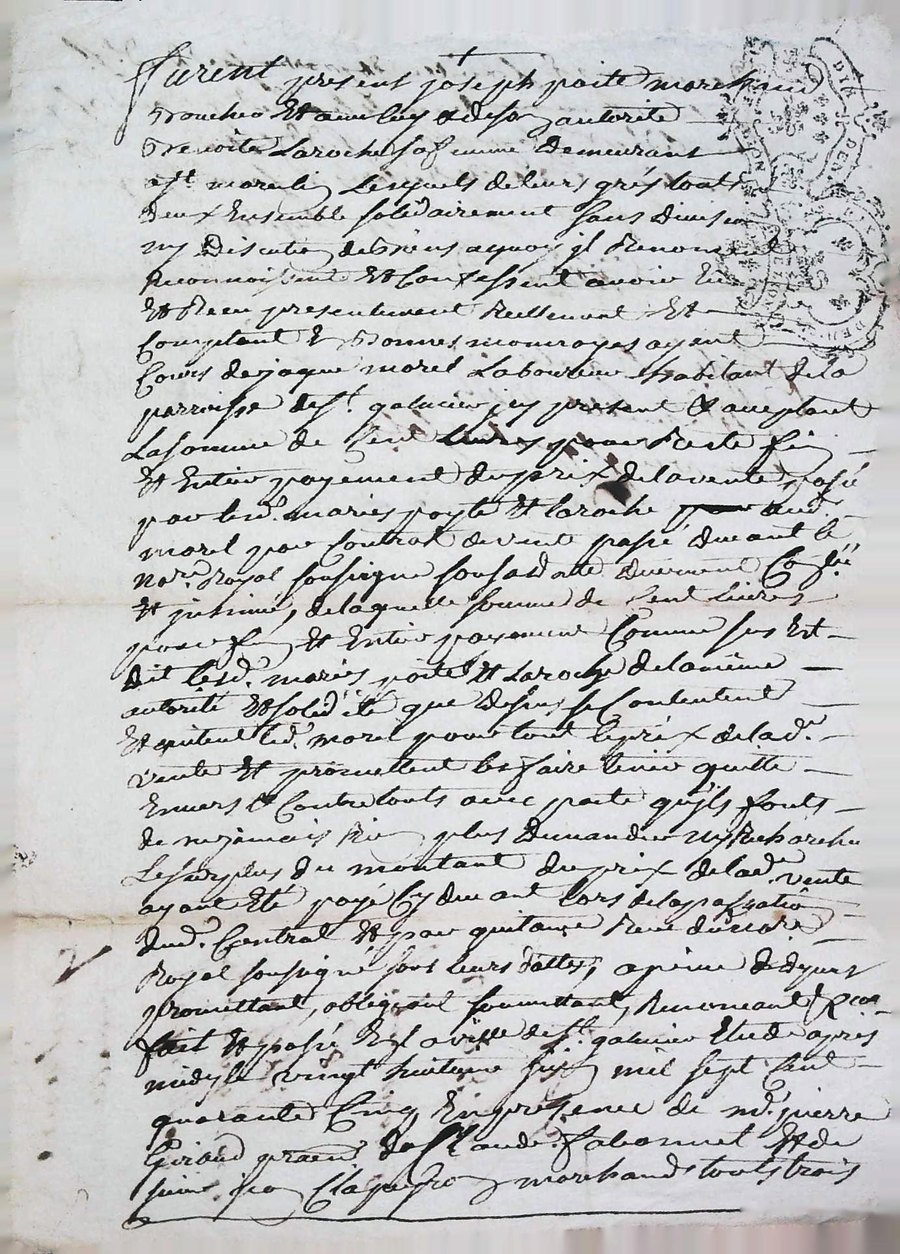 furent presents joseph poite marchand
Boucher Et avec luy & de son autorité
Benoite Laroche sa femme Demeurant
a st. marcelin Lesquels de leurs grés touts
deux Ensemble solidairement sans division
ny Discution de Biens a quoy jl Renoncent
Reconnoissent Et Confessent avoir Eu
Et Receu presentement Reellement Et
Comptant En Bonnes monnoyes ayent
Cours de jaque morel Laboureur habitant de la
parroisse de st. galmier jcy present & acceptant
La somme de Cent Livres pour Reste fin
Et Entier payement du prix de la vente passé
par lesd. mariés poyte Et Laroche aud.
morel par Contrat de vente passé devant le
nore. Royal soussigné sous sa datte duement
Et jnsinué, de laquelle somme de Cent Livres
pour fin Et Entier payement Comme sus Est
dit lesd. mariés poite Et Laroche de la même
autorité Et solidité que dessus se Contentent
Et quitent led. morel pour tout le prix de lad.
vente Et promettent les faire tenir quitte
Envers Et Contre touts avec pacte qu'jls fonts
de ne jamais Rien plus Demander ny Recharcher
Le surplus du montant du prix de lad. vente
ayant Eté payé Cy devant lors de la passation
dud. Contrat Et par quitance Receu du nore
Royal soussigné sous leurs dattes, a peine de depens
promettant, obligeant soumettant, Renonceant &
fait Et passé En la ville de st. galmier Etude après
midy le vingt huitieme juin mil sept Cent
quarante Cinq En presence de me. pierre
Giraud Claude Et de
marchands touts trois